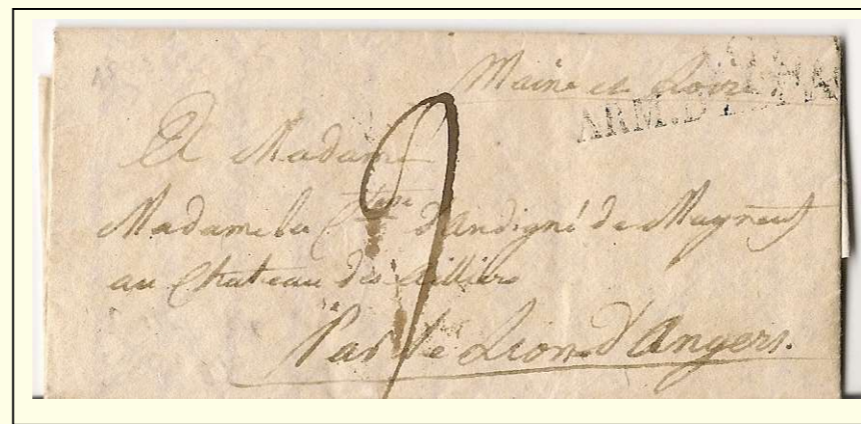 Maine et Loire
ARM. D'
A Madame
Madame la C.tesse d'Andigné de Mayneuf
au Chateau des
Par le Lion d'Angers.